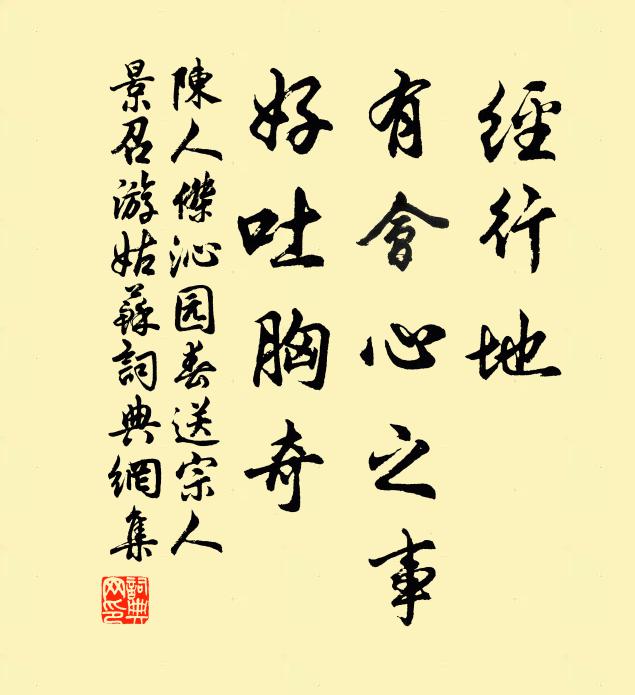 經行地
有會心之事
好吐胸奇
陳人傑沁园春送宗人
景召游姑蘇詞典網集
詞典
网印